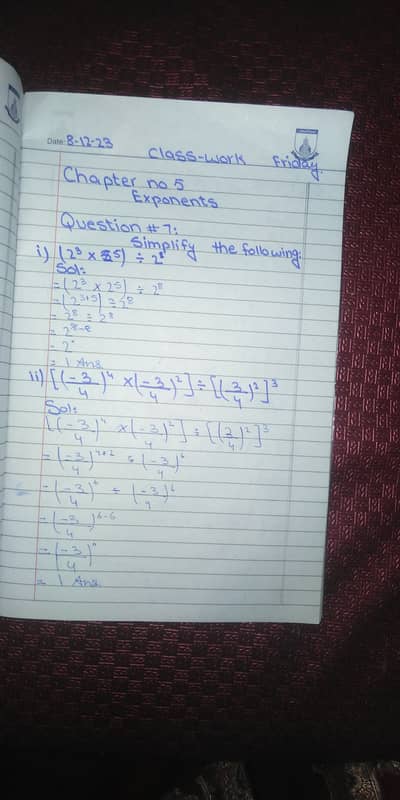 Date: 8-12-23
Class-work Friday.
Chapter no 5
Exponents
Question # 7:
Simplify the following:
i) (2³ x 2⁵) ÷ 2⁸
Sol:
= (2³ x 2⁵) ÷ 2⁸
= (2³⁺⁵) ÷ 2⁸
= 2⁸ ÷ 2⁸
= 2⁸⁻⁸
= 2⁰
= 1 Ans
ii) [(-3/4)⁴ x (-3/4)²] ÷ [(-3/4)²]³
Sol:
[(-3/4)⁴ x (-3/4)²] ÷ [(-3/4)²]³
= (-3/4)⁴⁺² ÷ (-3/4)⁶
= (-3/4)⁶ ÷ (-3/4)⁶
= (-3/4)⁶⁻⁶
= (-3/4)⁰
= 1 Ans